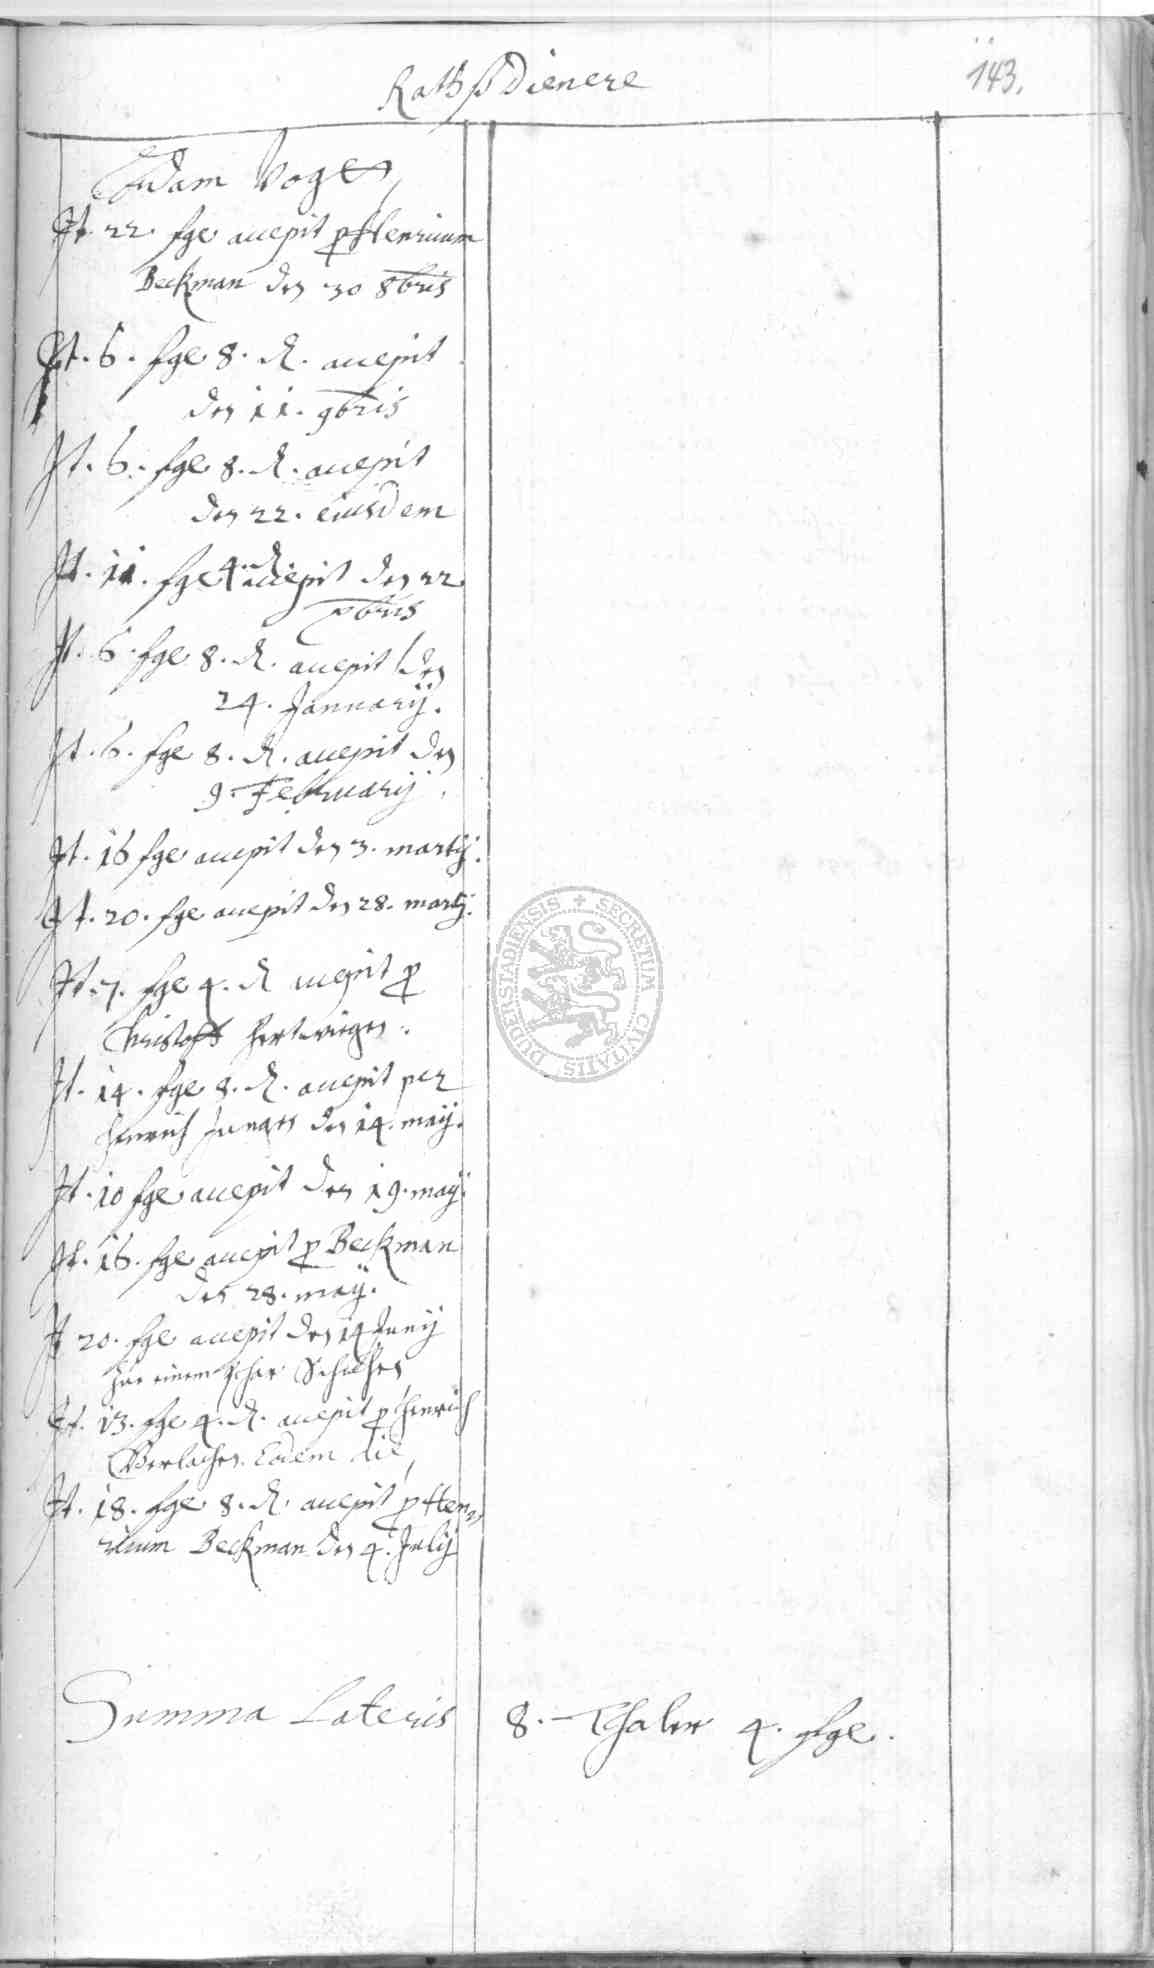 Rathsdienere
143.
Adam Voget
It. 22 fge accepit p Henricum
Beckman den 30 8bris
It. 6. fge 8. d. accepit
den 11. 9bris
It. 6. fge 8. d. accepit
den 22. eiusdem
It. 11. fge 4 d. accepit den 22
xbris
It. 6. fge 8. d. accepit den
24. Januarij.
It. 6. fge 8. d. accepit den
9. Februarij
It. 16 fge accepit den 3. martij.
It. 20. fge accepit den 28. martij.
It. 7. fge 4. d accepit p
Christoff Hertwiegen.
It. 14. fge 8. d. accepit per
Henrich den 14. maij.
It. 10 fge accepit den 19. maij.
It. 16. fge accepit p Beckman
den 28. maij.
It 20. fge accepit den 14 Junij
zue einem Schuhen
It. 13. fge 4. d. accepit p Henrich
Gerlachen. Eodem die
It. 18. fge 8. d. accepit p Hen=
ricum Beckman den 4. Julij
SECRETUM CIVITATIS DUDERSTADIENSIS
Summa Lateris 8. Thaler 4. fge.